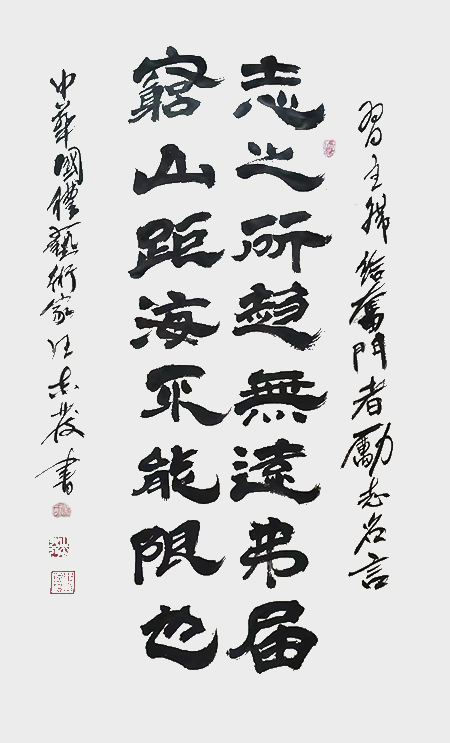 習主席給奮鬥者勵志名言
志之所趨無遠弗届
窮山距海不能限也
中華國禮藝術家汪志發書